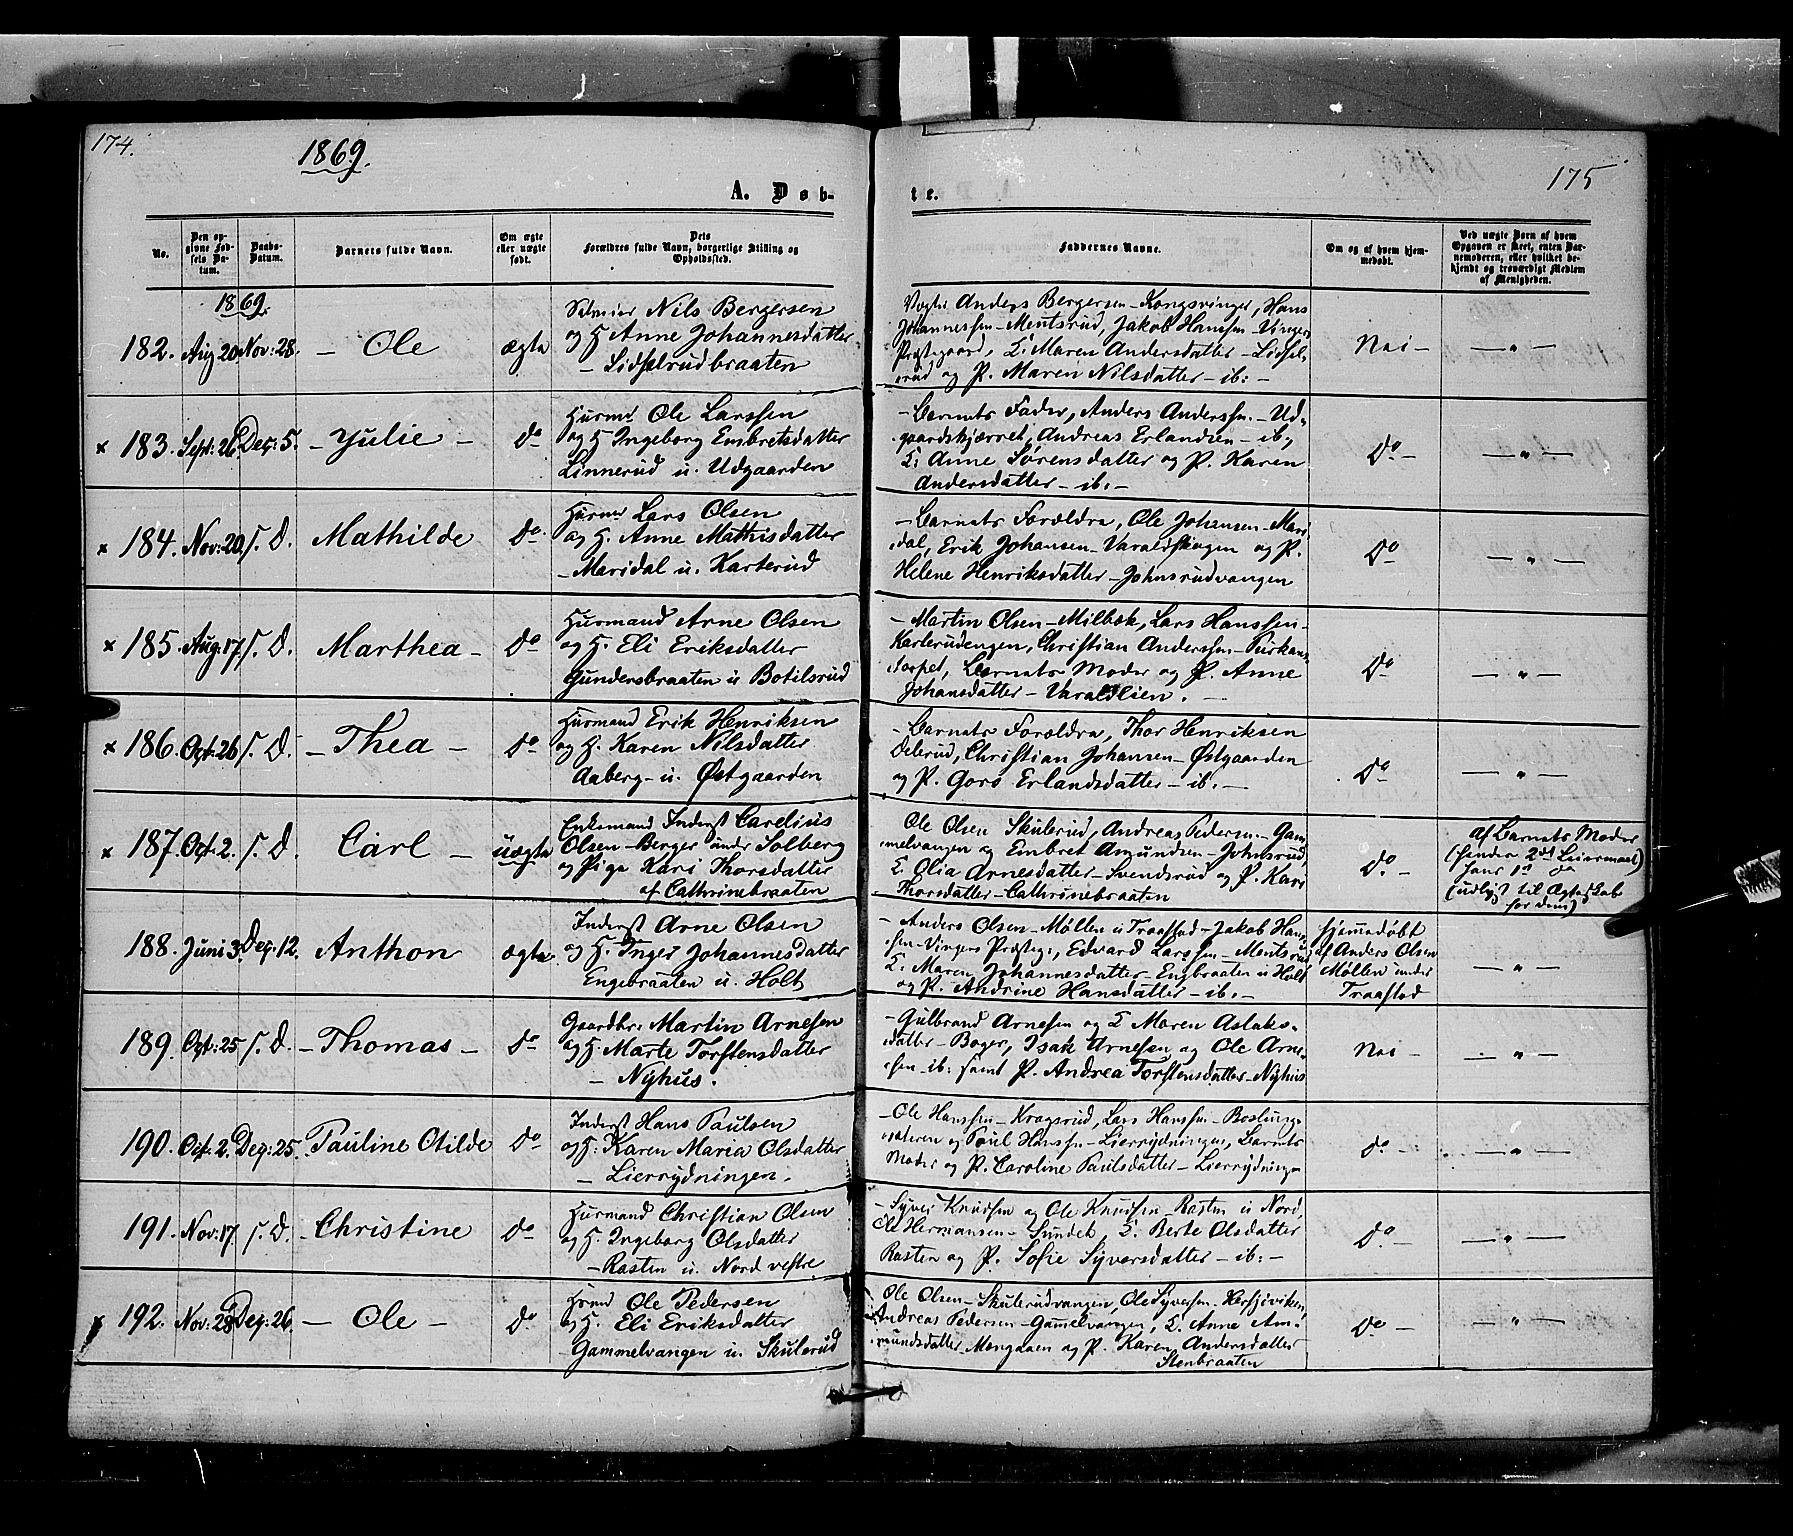 174.
1869.
175
A. Døb-
te.
No.
Den op-
givne Fød-
sels Da-
tum.
Daabs-
Datum.
Barnets fulde Navn.
Om ægte
eller uægte
født.
Dets
Forældres fulde Navn, borgerlige Stilling og
Opholdssted.
Faddernes Navne.
Om og af hvem hjem-
medøbt.
Ved uægte Børn af hvem
Opgaven er skeet, enten Bar-
nemoderen, eller hvilket be-
kjendt og troværdigt Medlem
af Menigheden.
1869.
182. Aug 20 Nov: 28. - Ole
ægte
Nils Bergersen
og H. Anne Johannesdatter
- Lidselrudbraaten
Anders Bergersen - Kongsvinger, Hans
Johannessen - Mentsrud, Jakob Hanssen - Vinger
Præstegaard, K: Maren Andersdatter - Lidsel-
rud og P. Maren Nilsdatter - ib: -
Nei -
- " -
x 183. Sept: 26 Dec: 5. - Julie -
do
Husmd Ole Larssen
og H Ingeborg Embretsdatter
Linnerud u. Udgaarden
- Barnets Fader, Anders Anderssen - Ud-
gaardskjærret, Andreas Erlandsen - ib,
K: Anne Sørensdatter og P. Karen
Andersdatter - ib: -
do -
- " -
x 184. Nov: 20. s. D. Mathilde
do
Husmd Lars Olsen
og H. Anne Mathisdatter
- Maridal u. Karterud
- Barnets Forældre, Ole Johansen - Mari-
dal, Erik Johansen - Varaldskogen og P.
Helene Henriksdatter - Johnsrudvangen
do
- " -
x 185. Aug: 17 s. D. Marthea -
do
Husmand Arne Olsen
og H. Eli Eriksdatter
Gundersbraaten u Botilsrud
- Martin Olsen - Milbek, Lars Hanssen -
Karterudengen, Christian Anderssen -
torpet, Barnets Moder og P. Anne
Johansdatter - Varaldlien. -
do -
- " -
x 186. Oct: 26 s. D. - Thea -
do
Husmand Erik Henriksen
og H. Karen Nilsdatter
Aaberg - u. Østgaarden
- Barnets Forældre, Thor Henriksen
Deberud, Christian Johansen - Østgaarden
og P. Goro Erlandsdatter - ib. -
do
- " -
x 187. Oct: 2. s. D. Carl -
uægte
Enkemand Inderst Carelius
Olsen - Berger under Solberg
og Pige Kari Thorsdatter
af Cathrinebraaten
Ole Olsen Skulerud, Andreas Pedersen - Gam-
melvangen og Embret Amundsen - Johnsrud,
K. Olia Arnesdatter - Svendsrud og P. Kari
Thorsdatter - Cathrinebraaten
do -
af Barnets Moder
(hendes 2det Leiermaal)
hans 1ste
(udlyst til Ægteskab
for dem)
188. Juni 3 Dec: 12. Anthon
ægte
Inderst Arne Olsen
og H. Inger Johannesdatter
Engebraaten u. Holt
- Anders Olsen - Møllen u Traastad - Jakob Hans-
sen - Vingers Præsteg:, Edvard Larssen - Mentsrud
K: Maren Johannesdatter - Engbraaten u Holt
og P. Andrine Hansdatter - ib. -
hjemmedøbt
af Anders Olsen
Møllen under
Traastad
- " -
189. Oct: 25 s. D. - Thomas -
do
Gaardbr: Martin Arnesen
og H. Marte Torstensdatter
- Nyhus.
- Gulbrand Arnesen og K Maren Aslaks-
datter - Boger, Isak Arnesen og Ole Arne-
sen ib: samt P. Andrea Torstensdatter - Nyhus
Nei -
- " -
190. Oct: 2. Dec: 25. Pauline Otilde
do
Inderst Hans Paulsen
og H: Karen Maria Olsdatter
- Lierrydningen.
- Ole Hanssen - Kragsrud, Lars Hanssen -
og Poul Hanssen - Lierrydningen, Barnets
Moder og P. Caroline Paulsdatter - Lierrydninge
do -
- " -
191. Nov: 17. s. D. - Christine
do
Husmand Christian Olsen
og H. Ingeborg Olsdatter
- Rasten u. Nord vestre
- Syver Knudsen og Ole Knudsen - Rasten u Nord,
Ole Hermansen - Sundet, K. Berte Olsdatter
Rasten og P. Sofie Syversdatter - ib: -
do -
- " -
x 192. Nov: 28 Dec: 26. - Ole -
do
Husmd Ole Pedersen
og H. Eli Eriksdatter
Gammelvangen u. Skulerud
Ole Olsen - Skulerudvangen, Ole Syversen -
Andreas Pedersen - Gammelvangen, K. Anne Am-
mundsdatter og P. Karen Andersdatter
Stenbraaten
do -
- " -